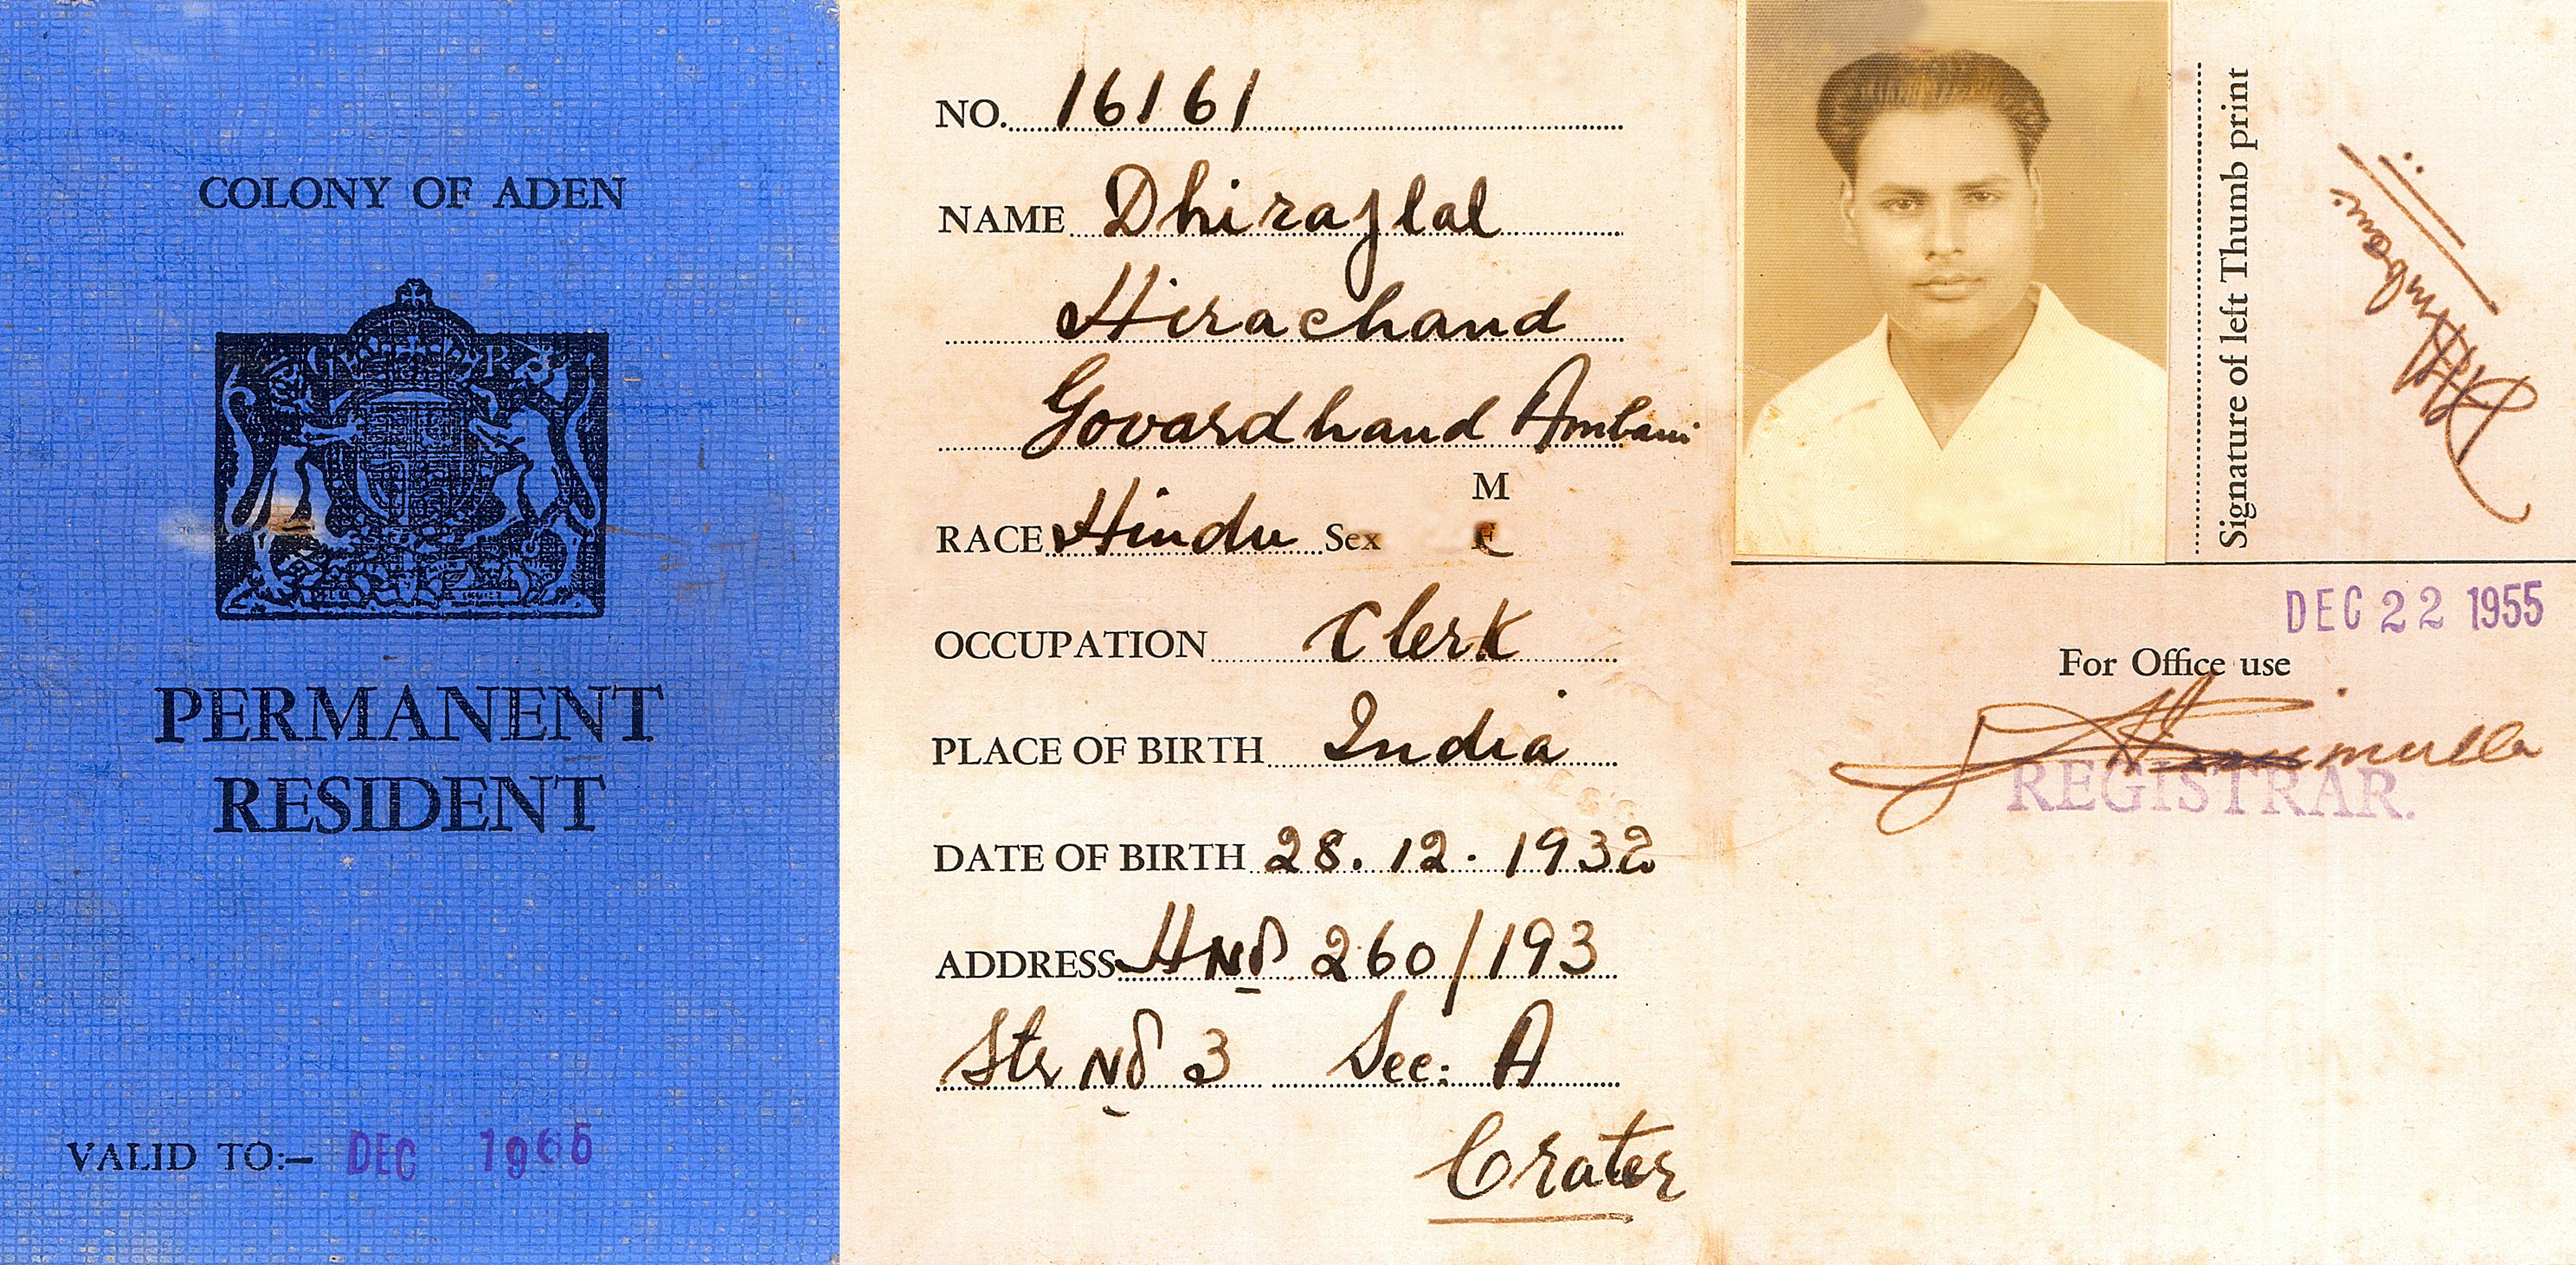 COLONY OF ADEN
PERMANENT
RESIDENT
VALID TO:– DEC 1965
NO. 16161
NAME Dhirajlal
Hirachand
Govardhand Ambani
RACE Hindu Sex M
OCCUPATION Clerk
PLACE OF BIRTH India
DATE OF BIRTH 28.12.1932
ADDRESS HNo 260/193
Str No 3 Sec: A
Crater
Signature of left Thumb print
DHAmbani
DEC 22 1955
For Office use
REGISTRAR.